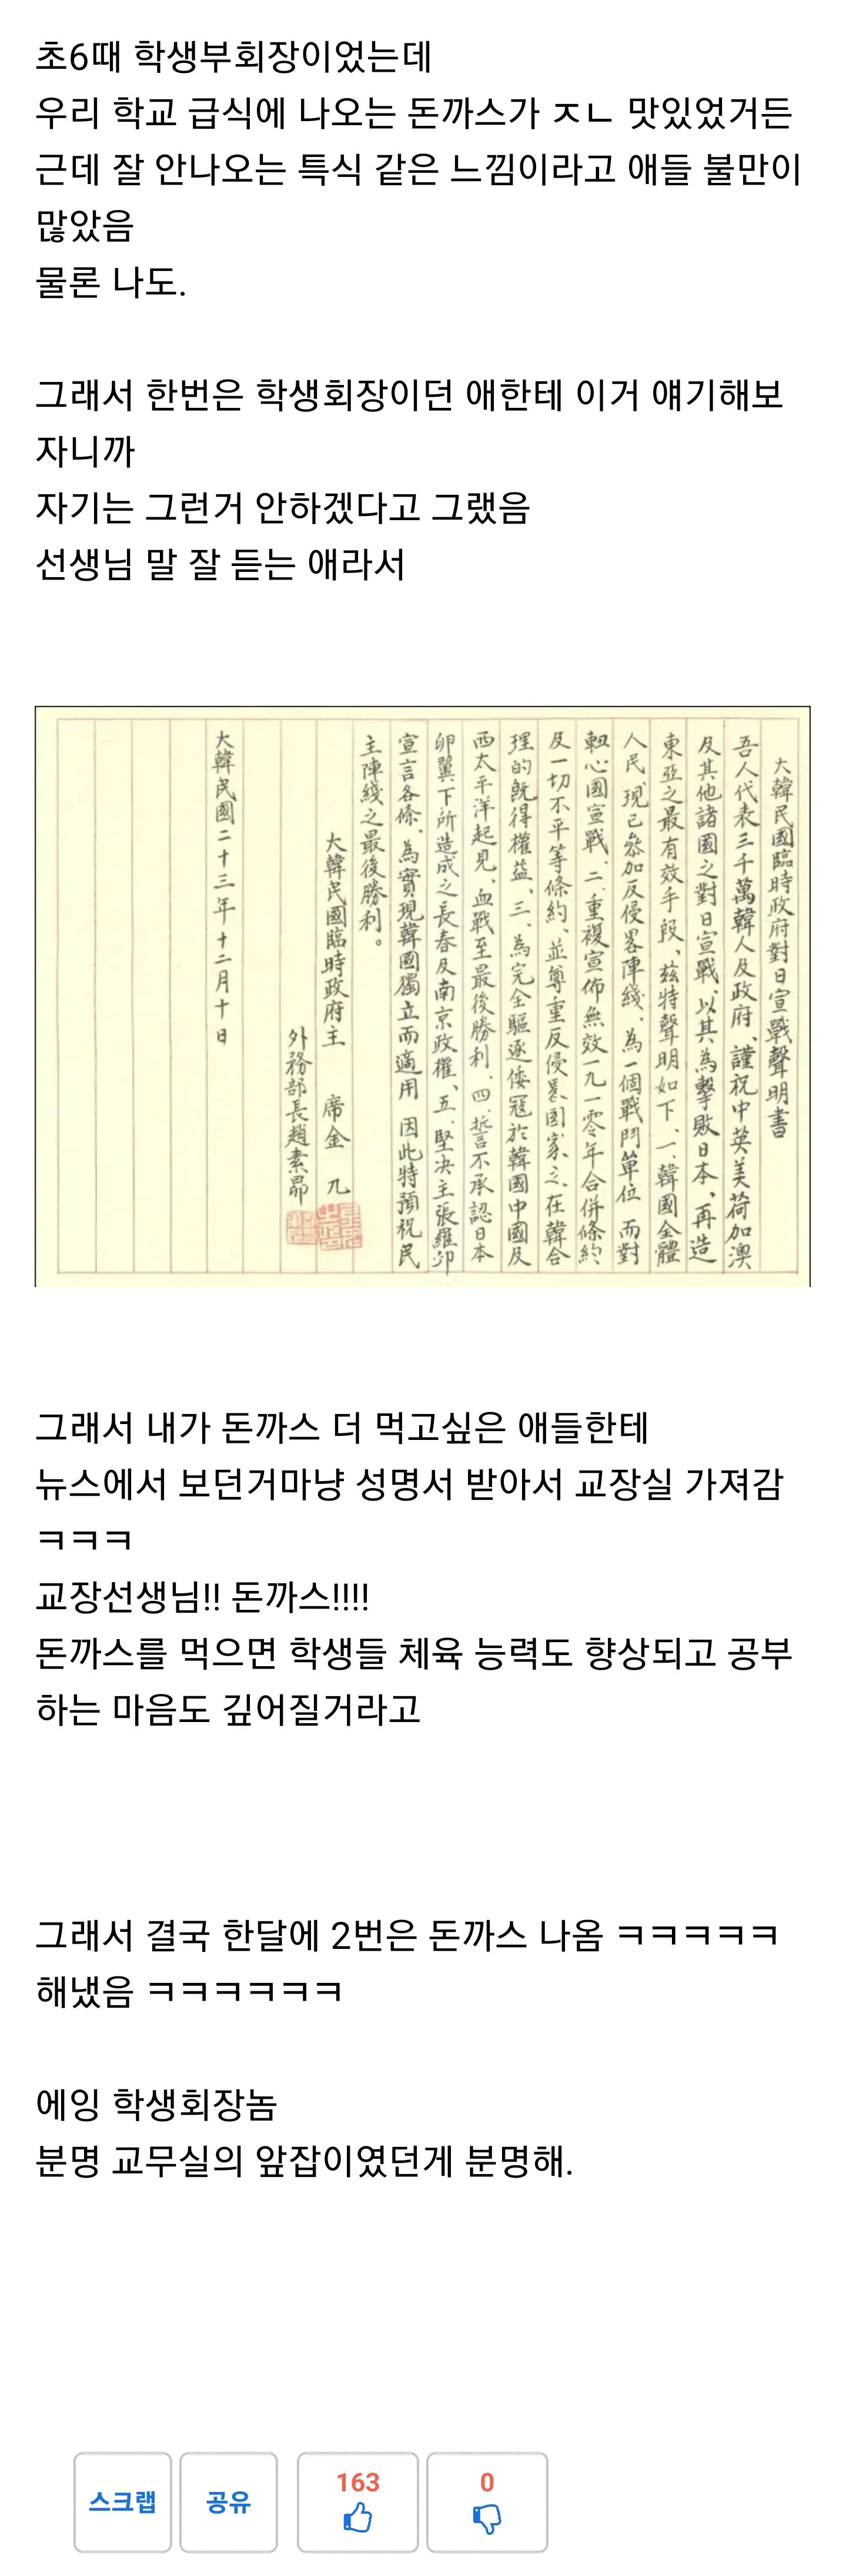 초6때 학생부회장이었는데
우리 학교 급식에 나오는 돈까스가 ㅈㄴ 맛있었거든
근데 잘 안나오는 특식 같은 느낌이라고 애들 불만이
많았음
물론 나도.
그래서 한번은 학생회장이던 애한테 이거 얘기해보
자니까
자기는 그런거 안하겠다고 그랬음
선생님 말 잘 듣는 애라서
大韓民國臨時政府對日宣戰聲明書
吾人代表三千萬韓人及政府、謹祝中英美荷加澳
及其他諸國之對日宣戰、以其為擊敗日本、再造
東亞之最有效手段、玆特聲明如下、一、韓國全體
人民、現已參加反侵畧陣綫、為一個戰鬥單位、而對
軸心國宣戰、二、重複宣佈無效一九一零年合併條約
及一切不平等條約、並尊重反侵畧國家之、在韓合
理的旣得權益、三、為完全驅逐倭冦於韓國中國及
西太平洋起見、血戰至最後勝利、四、誓言不承認日本
卵翼下所造成之長春及南京政權、五、堅决主張羅邱
宣言各條、為實現韓國獨立而適用 因此特預祝民
主陣綫之最後勝利。
大韓民國臨時政府主 席 金 九
外務部長趙素昻
大韓民國二十三年十二月十日
그래서 내가 돈까스 더 먹고싶은 애들한테
뉴스에서 보던거마냥 성명서 받아서 교장실 가져감
ㅋㅋㅋ
교장선생님!! 돈까스!!!!
돈까스를 먹으면 학생들 체육 능력도 향상되고 공부
하는 마음도 깊어질거라고
그래서 결국 한달에 2번은 돈까스 나옴 ㅋㅋㅋㅋㅋ
해냈음 ㅋㅋㅋㅋㅋㅋ
에잉 학생회장놈
분명 교무실의 앞잡이였던게 분명해.
스크랩 공유 163 0